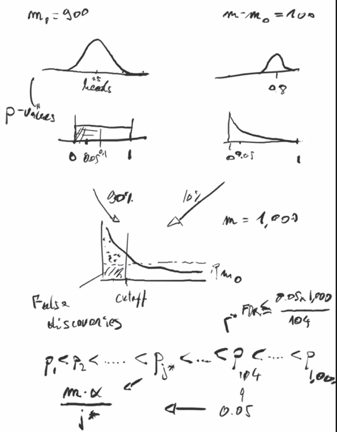 m₁ = 900
m - m₀ = 100
.5
heads
0.8
p-values
0 0.05 0.1 1
0 0.05 1
90%
10%
m = 1,000
m₀
False
discoveries
cutoff
FDR ≤ 0.05 × 1,000 / 104
p₁ < p₂ < ..... < pⱼ* < ... < p₁₀₄ < .... < p₁,₀₀₀
m · α / j*
0.05